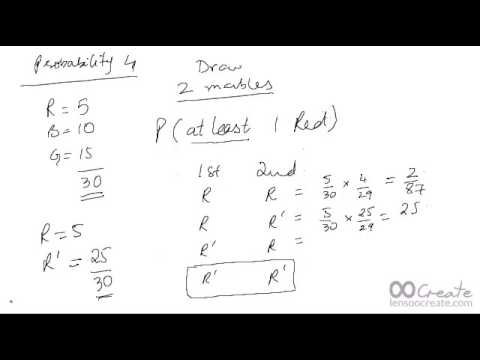 Probability 4
R = 5
B = 10
G = 15
30
R = 5
R' = 25
30
Draw
2 marbles
P (at least 1 Red)
1st 2nd
R R = 5/30 × 4/29 = 2/87
R R' = 5/30 × 25/29 = 25
R' R =
R' R'
Create
lensoocreate.com